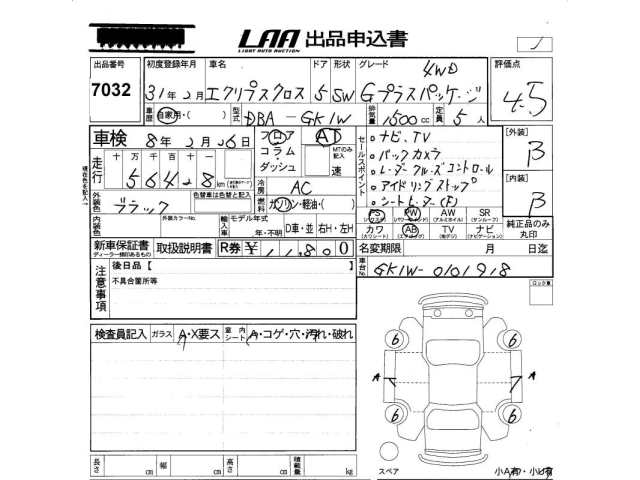 LAA 出品申込書
LIGHT AUTO AUCTION
出品番号 初度登録年月 車名 ドア 形状 グレード 4WD 評価点
7032 31年2月 エクリプスクロス 5 SW Gプラスパッケージ 4.5
車歴 自家用・( ) 型式 DBA-GK1W 排気量 1500cc 定員 5人
車検 8年2月26日 フロア コラム・ダッシュ AT MTのみ記入 速
セールスポイント
・ナビ、TV
・バックカメラ
・レーダークルーズコントロール
・アイドリングストップ
・シートヒーター(F)
[外装] B
[内装] B
走行 十万 万 千 百 十 一
56428km
冷房 AC
外装色 ブラック 色替車は色替と記入 燃料 ガソリン・軽油・( )
PS (パワステ) PW (パワーウインド) AW (アルミホイル) SR (サンルーフ) 純正品のみ丸印
カワ (カワシート) AB (エアバッグ) TV (地デジ) ナビ (ナビゲーション)
内装色 外装カラーNo. 輸入車 モデル年式 年・不明 D車・並 右H・左H
新車保証書 ディーラー捺印あるもの 取扱説明書 R券 ¥11,800 名変期限 月 日迄
注意事項 後日品【 車台No. GK1W-0101918
不具合箇所等
ロック車
検査員記入 ガラス A・X要ス 室内シート A・コゲ・穴・汚れ・破れ
6 6
A A
6 6
長さ cm 幅 cm 高さ cm 積載量 kg
スペア 小A有・小U有